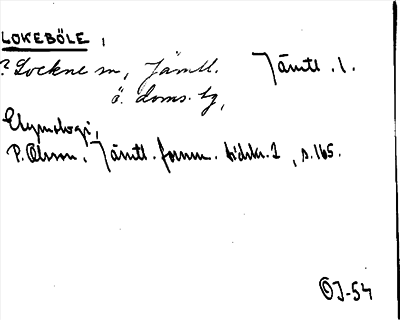 LOKEBÖLE,
? Lockne sn, Jämtl. Jämtl. l.
ö. doms. tg,
Etymologi,
P. Olsson, Jämtl. fornm. tidskr. 1, s. 165.
OJ-54